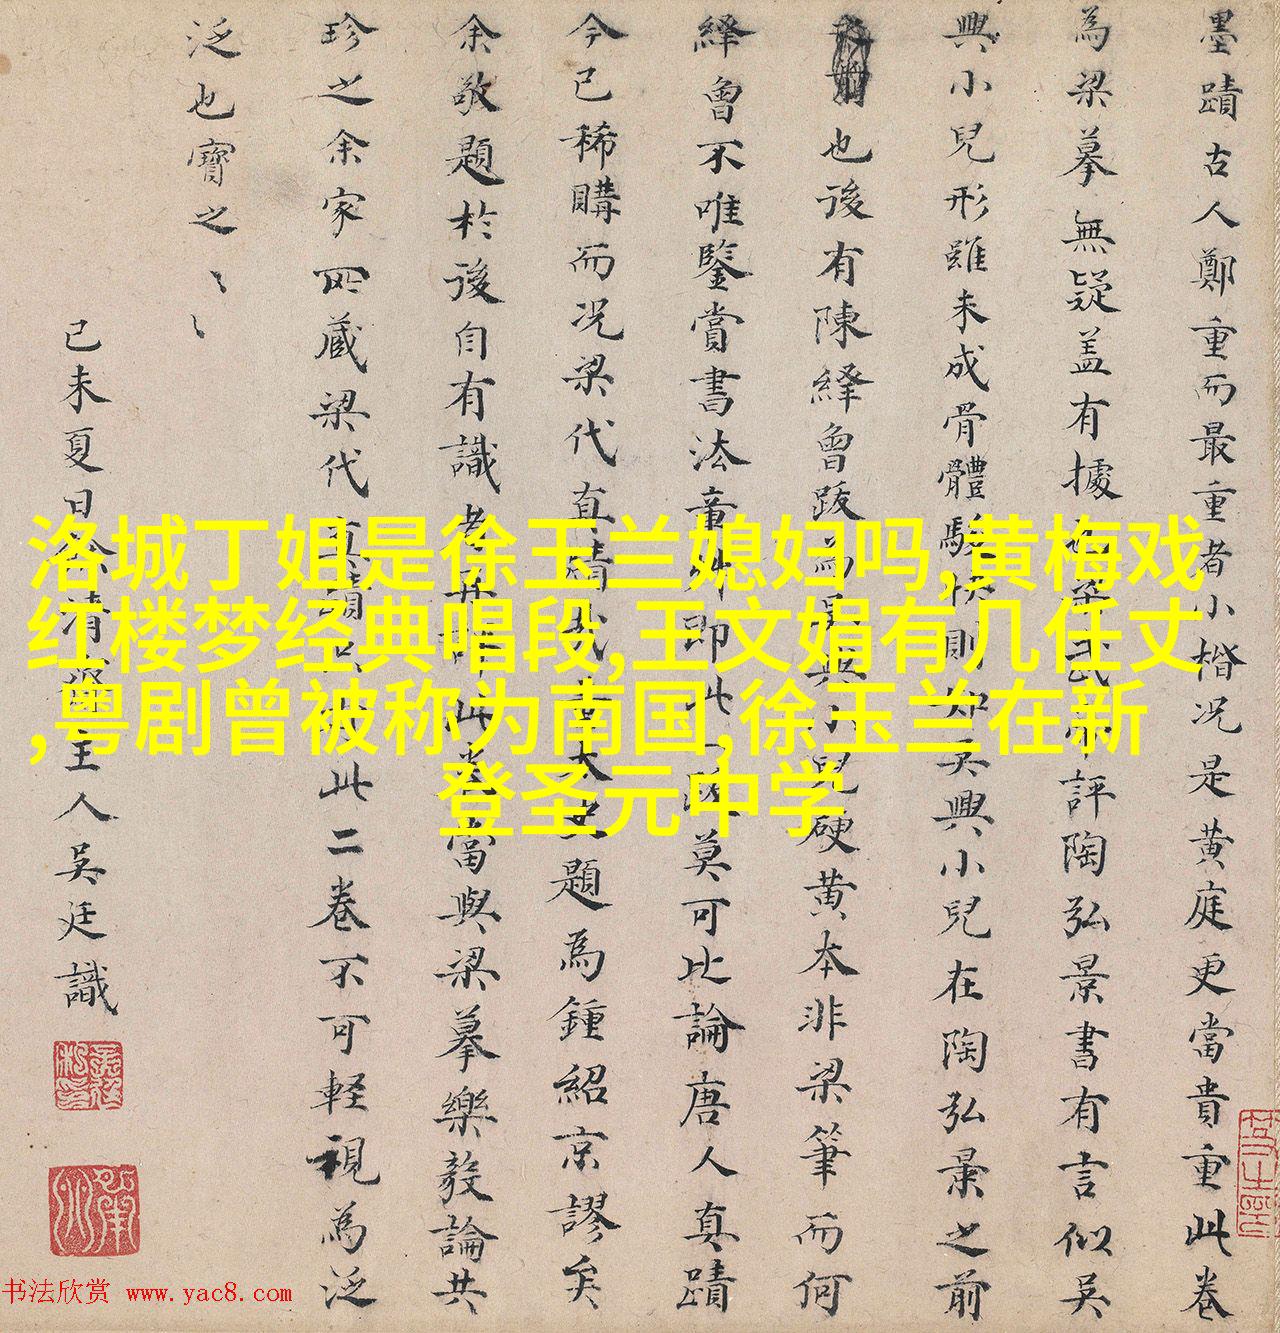 墨蹟古人鄭重而最重者小楷况是黄庭更當貴重此卷
為梁摹無疑盖有據梁武帝評陶弘景書有言似吳
興小兒形雖未成骨體駿快則知吳興小兒在陶弘景之前
也後有陳繹曾跋為吳興小兒硬黄本非梁筆而何
繹曾不唯鑒賞書法即此一跋莫可比論唐人真蹟
今已稀購而况梁代真蹟題為鍾紹京謬矣
余敬題於後自有識者此卷當與梁摹樂毅論共
珍之余家所藏梁代真蹟此二卷不可輕視為泛
泛也寶之
己未夏日主人吳廷識
洛城丁姐是徐玉兰媳妇吗,黄梅戏
红楼梦经典唱段,王文娟有几任丈
,粤剧曾被称为南国,徐玉兰在新
登圣元中学
书法欣赏 www.yac8.com